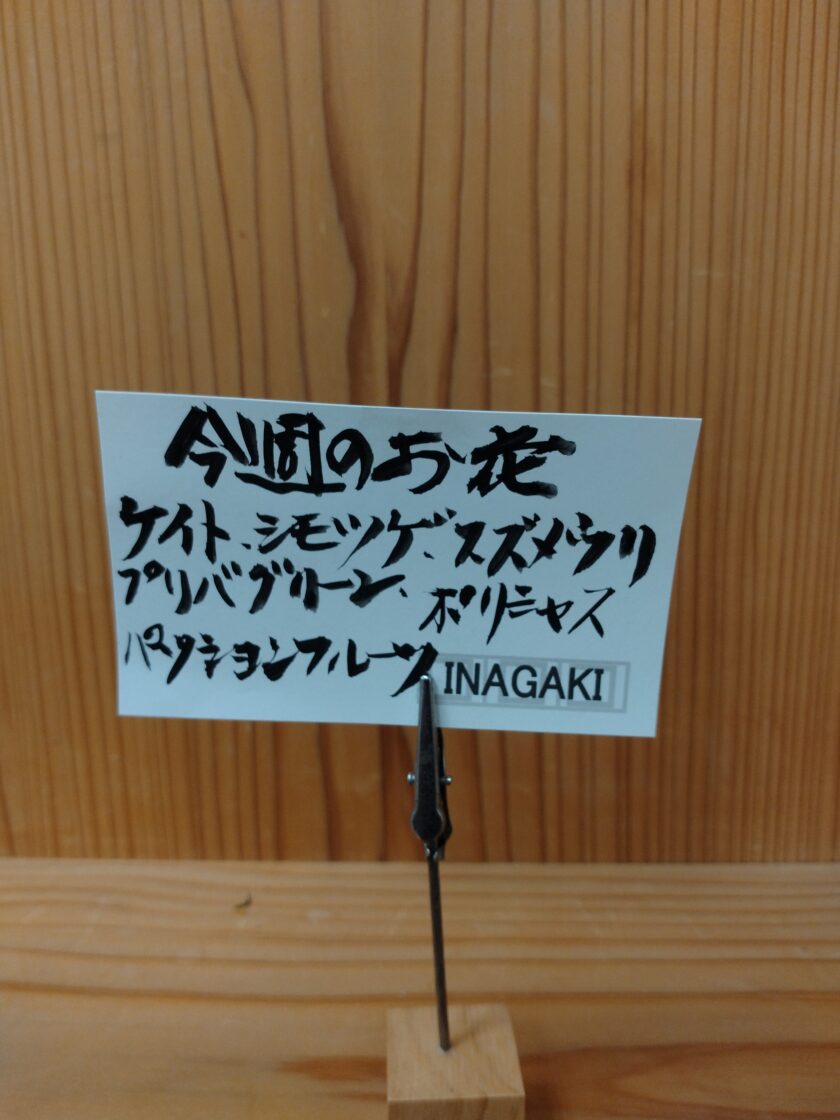 今週のお花
ケイト、シモツゲ、スズメウリ
プリバグリーン、ポリシャス
パッションフルーツ INAGAKI